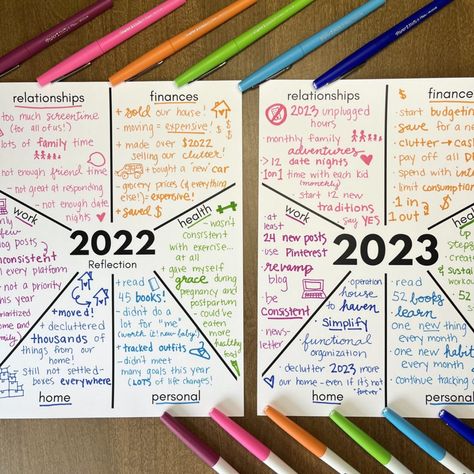 relationships
too much screentime
(for all of us!)
lots of family time
not enough friend time
not great at responding
not enough date
nights
finances
+ sold our house!
- moving - expensive!
+ made over $2022
selling our clutter!
+ bought a new car
grocery prices (& everything
else!) - expensive!
+ saved $
work
only a
few
blog posts
inconsistent
on every platform
- not a priority
this year
prioritized
home and
family
2022
Reflection
health
- wasn't
consistent
with exercise...
at all
+ gave myself
grace during
pregnancy and
postpartum
- could've
eaten
more
healthy
food
+ moved!
+ decluttered
thousands of
things from our
home!
- still not settled-
boxes everywhere
home
+ read
45 books!
- didn't do a
lot for "me"
+ tracked outfits
- didn't meet
many goals this year
(LOTS of life changes!)
personal
relationships
2023 unplugged
hours
• monthly family
adventures
• 12 date nights
• 1on1 time with each kid
(monthly)
• start 12 new
traditions
• say YES
finances
• start budgeting
• save for a
• clutter → cash
• pay off all
• spend with
• limit consumption
• 1 in
1 out
work
• at
least
24 new posts
• use Pinterest
• revamp
blog
• be
consistent
• news-
letter
2023
health
• operation
house to
haven
• Simplify
• functional
organization
• declutter 2023 more
our home - even if it's not
"forever"
home
• read
52 books
• learn
one new thing
every month
• one new habit
every month
• continue tracking
personal